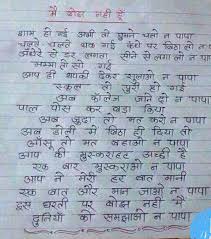 मै बोझ नही हूँ
शाम हो गई अभी तो घुमने चलो न पापा
चलते चलते थक गई कंधे पर बिठा लो न पापा
अंधेरे से लगता सीने से लगा लो न पापा
मम्मी तो सो गई
आप ही थपकी देकर सुलाओ न पापा
स्कूल तो पूरी हो गई
अब कॉलेज जाने दो न पापा
पाल पोस कर बड़ा किया
अब जुदा तो मत करो न पापा
अब डोली में बिठा ही दिया तो
आँसू तो मत बहाओ न पापा
आप की मुस्कुराहट अच्छी है
एक बार मुस्कुराओ न पापा
आप ने मेरी हर बात मानी
एक बात और मान जाओ न पापा
इस धरती पर बोझ नही मैं
दुनियाँ को समझाओ न पापा